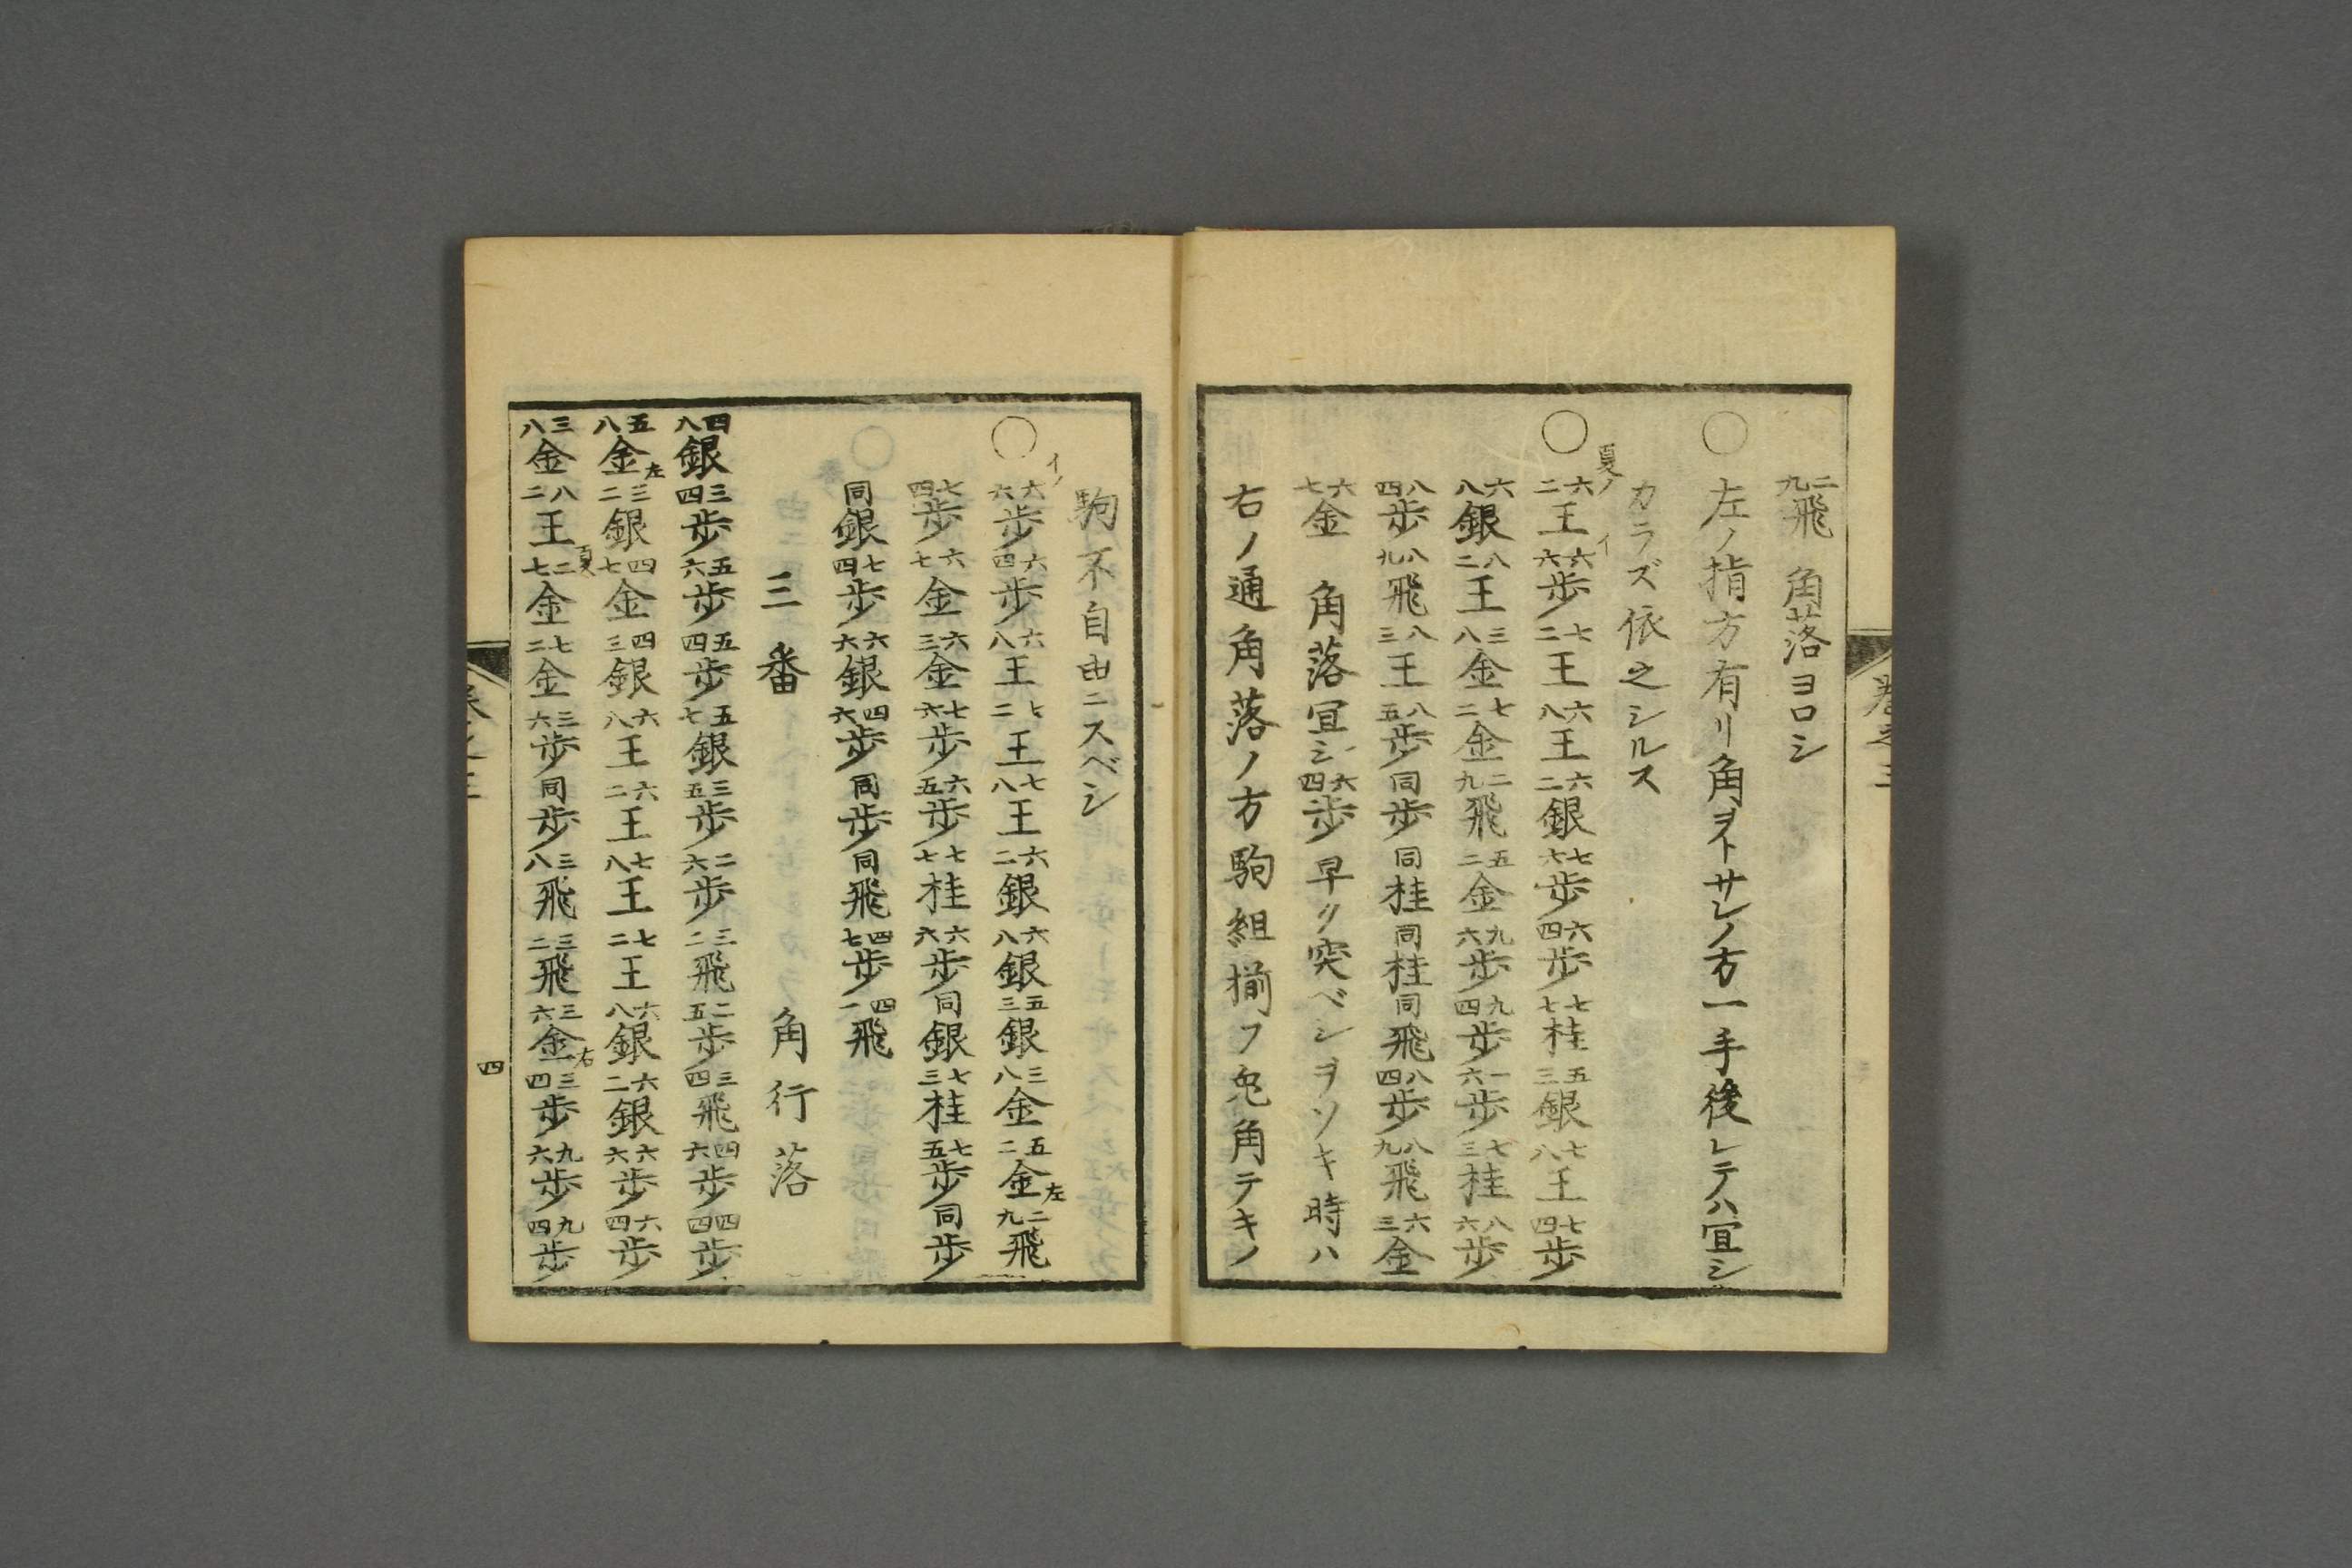 巻之三
二九飛 角落ヨロシ
○左ノ指方有リ角ヲトサレノ方一手後レテハ宜シ
カラズ依之シルス
○夏ノ六二王イ六六歩七二王六八王六二銀七六歩六四歩七七桂五三銀七八王七四歩
六八銀八二王三八金七二金二九飛五二金九六歩九四歩一六歩七三桂八六歩
八四歩八九飛八三王八五歩同歩同桂同桂同飛八四歩八九飛六三金
六七金 角落宜シ六四歩早ク突ベシヲソキ時ハ
右ノ通角落ノ方駒組揃フ兎角テキノ
駒不自由ニスベシ
○イノ六六歩六四歩六八王七二王七八王六二銀六八銀五三銀三八金五二金左二九飛
七四歩六七金六三金七六歩六五歩七七桂六六歩同銀七三桂七五歩同歩
同銀七四歩六六銀四六歩同歩同飛四七歩四一飛
三番 角行落
四八銀三四歩五六歩五四歩五七銀三五歩二六歩三二飛二五歩三四飛四六歩四四歩
五八金左三二銀四七金四三銀六八王六二王七八王七二王六八銀六二銀六六歩六四歩
三八金八二王夏二七金七二金三六歩同歩三八飛三二飛三六金右三四歩九六歩九四歩
四